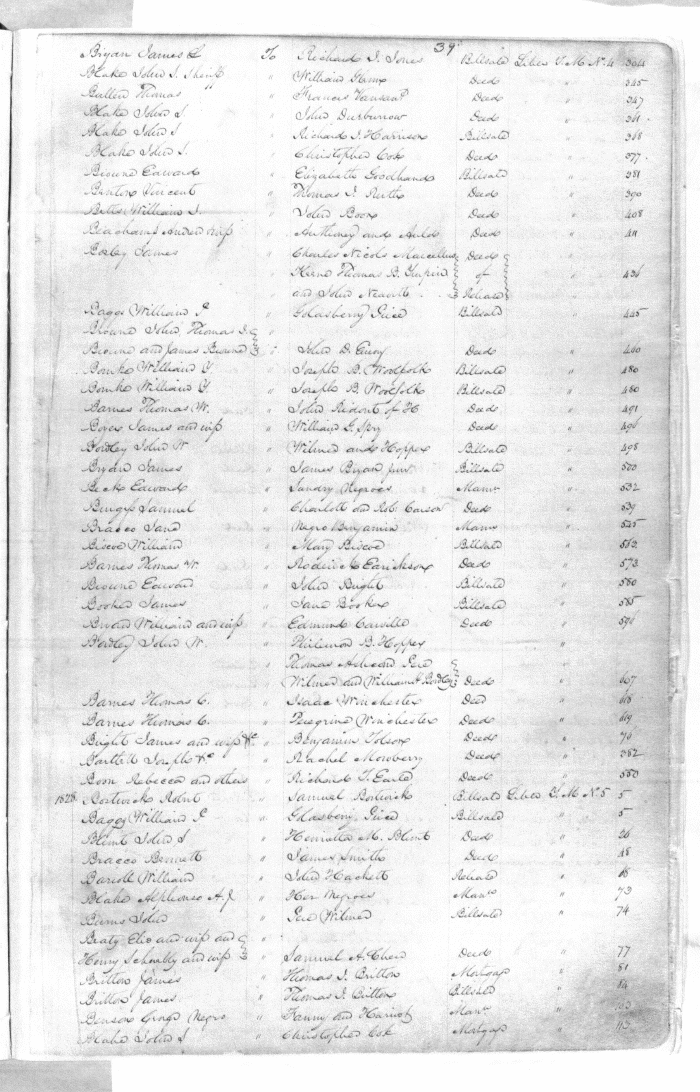 39
Bryan James L To Richard I. Jones Billsale Liber T. M. No. 4 304
Blake John S. Sheriff " William Deed " 345
Bullen Thomas " Francis Vansant Deed " 347
Blake John S. " John Durburrow Deed " 361
Blake John S " Richard I. Harrison Billsale " 368
Blake John S. " Christophel Cox Deed " 377
Browne Edward " Elizabeth Goodhand Billsale " 381
Benton Vincent " Thomas I. Deed " 390
Betts William S. " John Boon Deed " 408
Beachamp Andrew wife " Anthony and Deed " 411
James " Charles Nicols Marcellus Deed
Keene Thomas B. of " 436
and John Release
Baggs William P " Goldsberry Price Billsale " 445
Browne John, Thomas I.
Browne and James Browne " John D. Emory Deed " 460
William Y. " Joseph B. Woolfolk Billsale " 480
William Y " Joseph B. Woolfolk Billsale " 480
Barnes Thomas W. " John of H Deed " 491
James and wife " William G. Spry Deed " 496
Bordley John W " Wilmer and Hopper Billsale " 498
Bryan James " James Bryan Junr. Billsale " 500
Beck Edward " Sundry Negroes Manr " 532
Samuel " Charlott and Rob. Carson Deed " 539
Bracco Jane " Negro Benjamin Manr " 545
Biscoe William " Mary Biscoe Billsale " 562
Barnes Thomas W. " Roderick Earickson Deed " 573
Browne Edward " John Bright Billsale " 580
Booker James " Jane Booker Billsale " 585
William and wife " Edmund Carville Deed " 596
Bordley John W. " Philemon B. Hopper "
" Thomas "
" Wilmer and William Bordley Deed " 607
Barnes Thomas C. " Isaac Winchester Deed " 618
Barnes Thomas C. " Peregrine Winchester Deed " 619
Bright James and wife &c. " Benjamin Tolson Deed " 76
Bartlett Joseph &c " Rachel Deed " 382
Boon Rebecca and others " Richard T. Earle Deed " 550
1828 Bostwick Robert " Samuel Bostwick Billsale Liber T. M No 5 5
Baggs William P " Goldsberry Price Billsale " 5
Blunt John S " Henrietta M. Blunt Deed " 26
Bracco Bennett " James Smith Deed " 48
William " John Hackett Release " 68
Blake Alphonso A. J " Her Negroes Manr " 73
Burns John " Wilmer Billsale " 74
Beaty and wife and "
Henry and wife " Samuel A. Deed " 77
Britton James " Thomas I. Britton Mortgage " 81
Britton James " Thomas I. Britton Billsale " 84
Benson George Negro " Fanny and Harriot Manr "
Blake John S " Christopher Cox Mortgage " 113